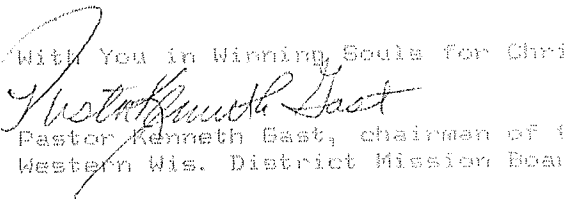 With You in Winning Souls for Chri
Pastor Kenneth Gast
Pastor Kenneth Gast, chairman of t
Western Wis. District Mission Boar